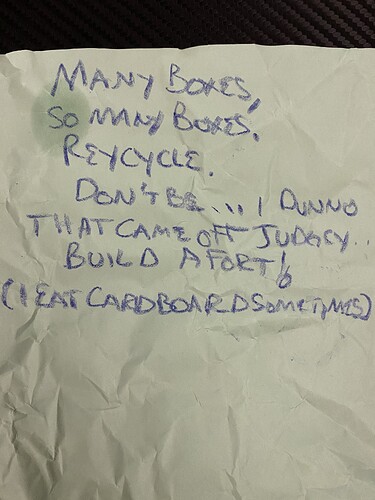 MANY BOXES,
SO MANY BOXES.
REYCYCLE.
DON'T BE... I DUNNO
THAT CAME OFF JUDGEY..
BUILD A FORT!
(I EAT CARDBOARD SOMETIMES)